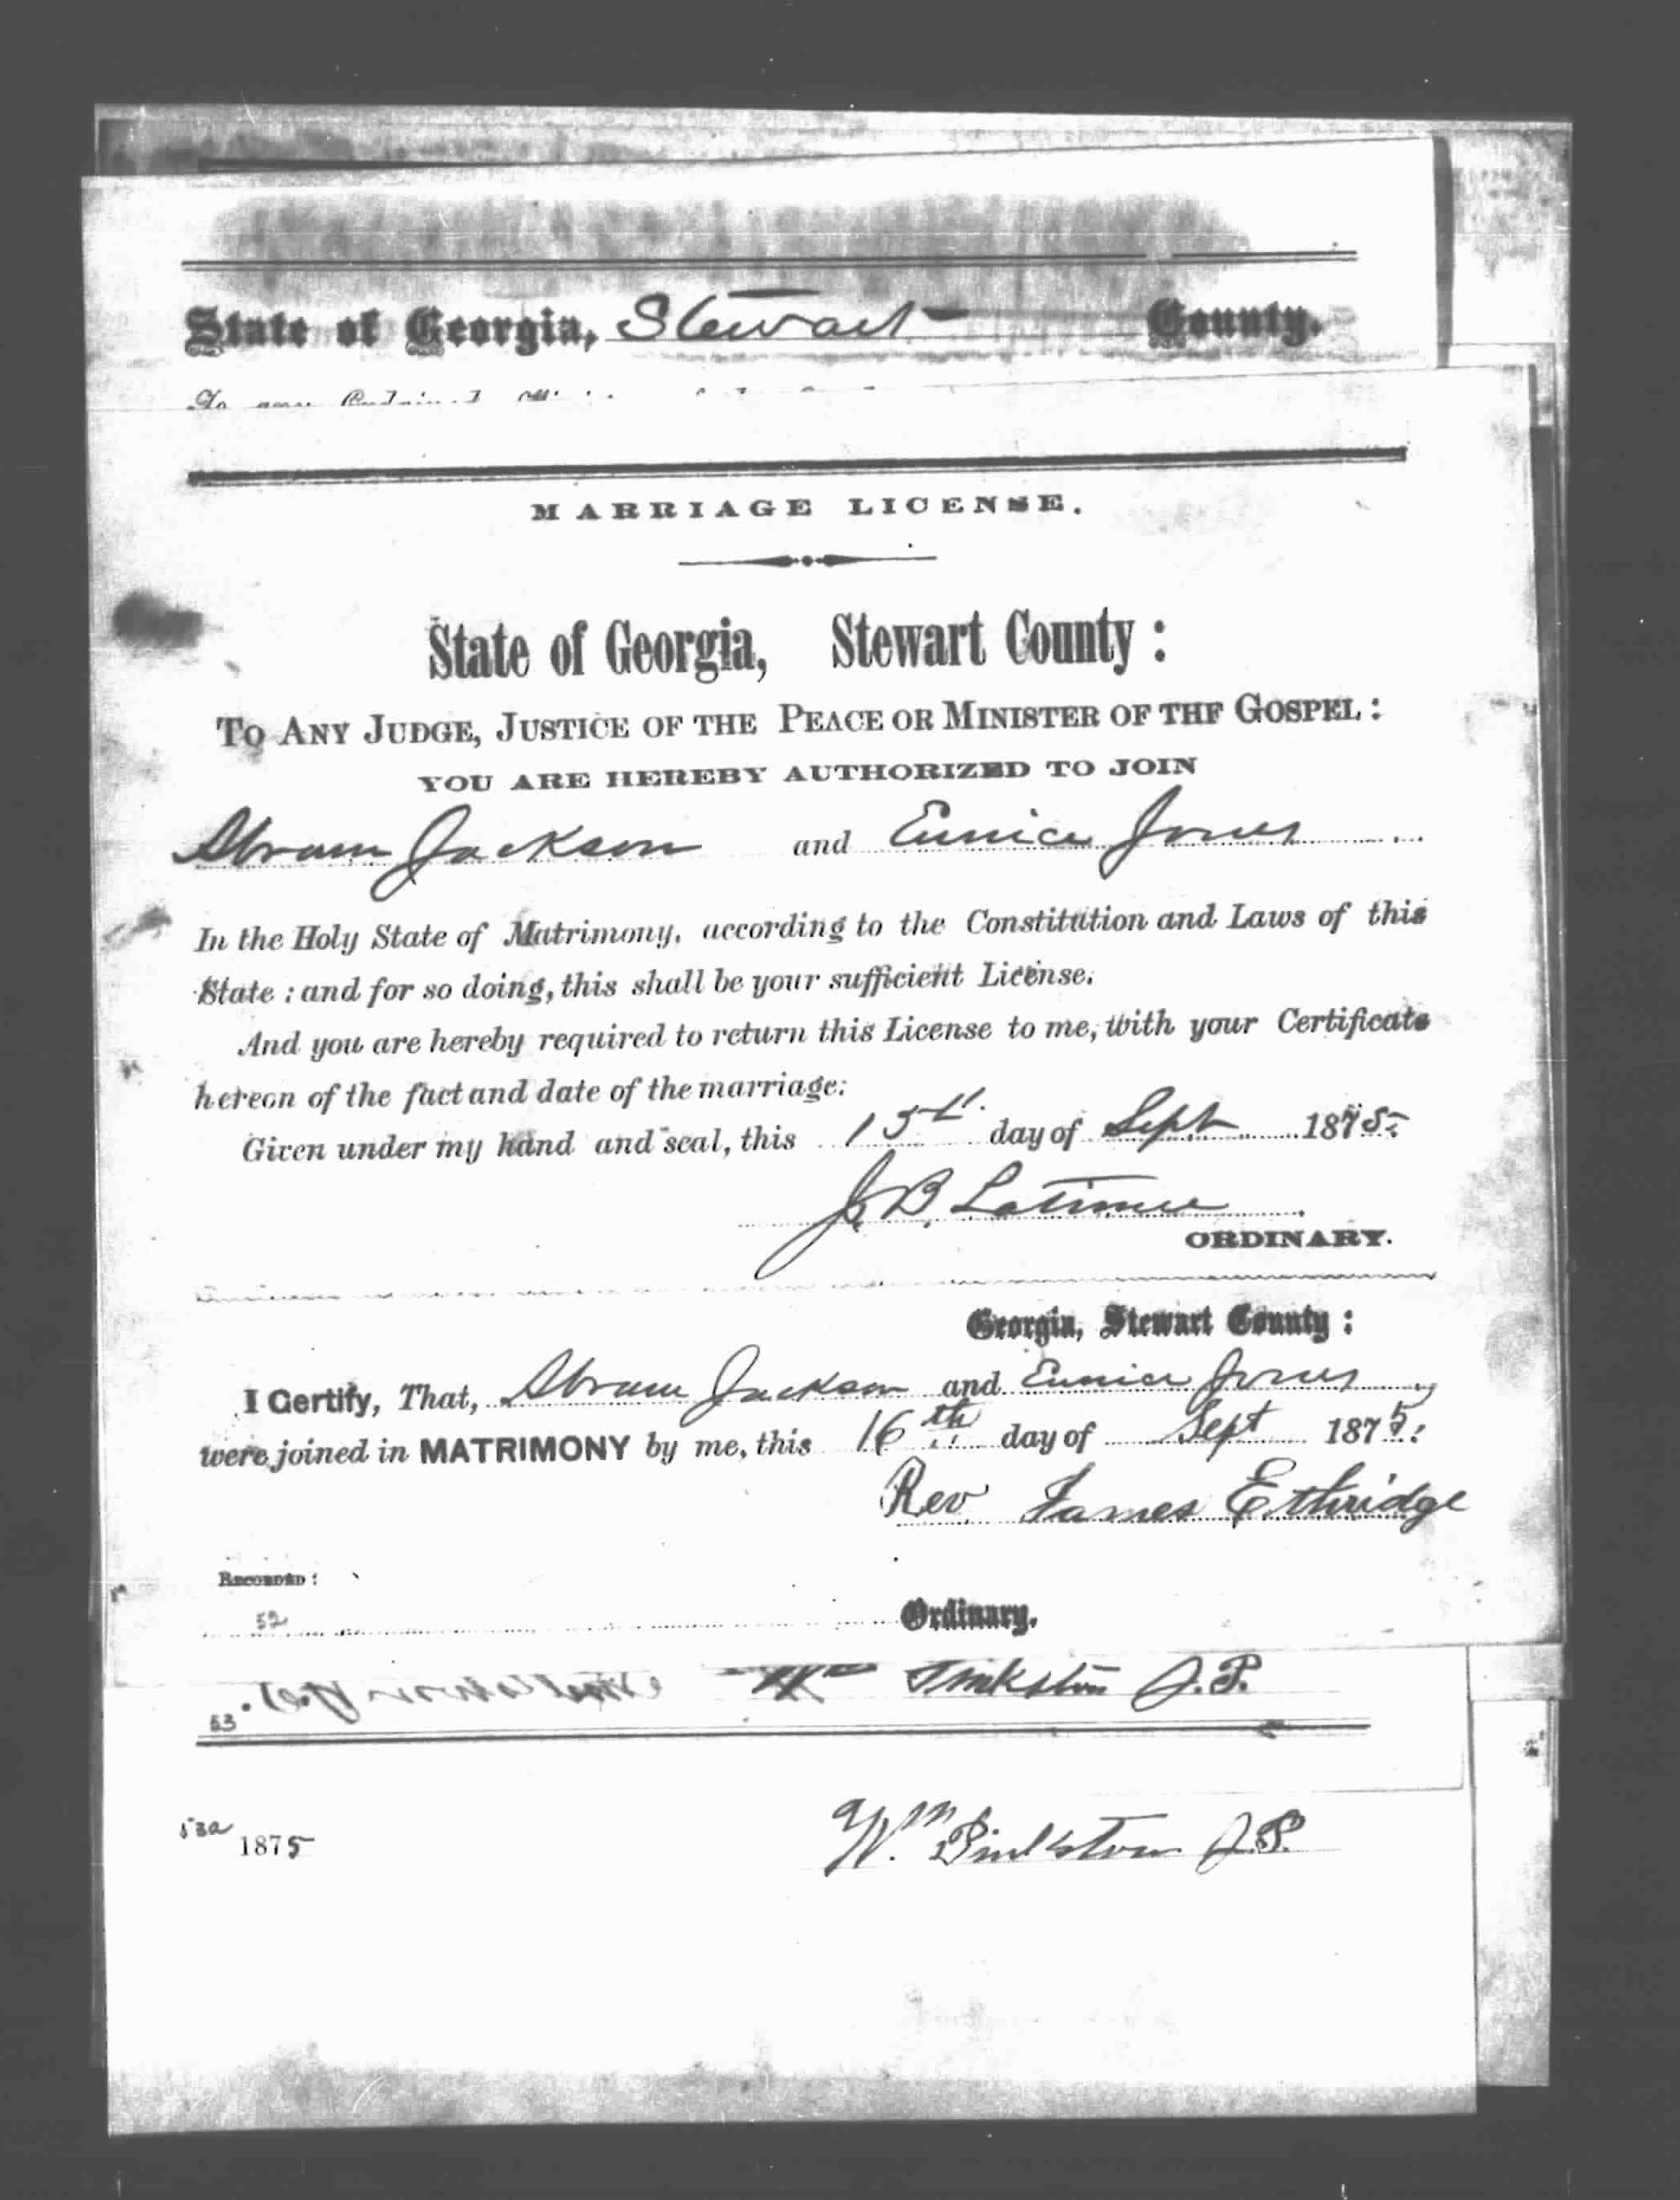 State of Georgia, Stewart County.
To any
MARRIAGE LICENSE.
State of Georgia, Stewart County :
TO ANY JUDGE, JUSTICE OF THE PEACE OR MINISTER OF THE GOSPEL :
YOU ARE HEREBY AUTHORIZED TO JOIN
Abram Jackson and Eunice Jones
In the Holy State of Matrimony, according to the Constitution and Laws of this
State ; and for so doing, this shall be your sufficient License.
And you are hereby required to return this License to me, with your Certificate
hereon of the fact and date of the marriage.
Given under my hand and seal, this 15th day of Sept 1875.
J. B. Latimer
ORDINARY.
Georgia, Stewart County :
I Certify, That, Abram Jackson and Eunice Jones,
were joined in MATRIMONY by me, this 16th day of Sept 1875.
Rev James Ethridge
RECORDED :
52
Ordinary.
Wm Pinkston J.P.
53
53a 1875
Wm Pinkston J.P.